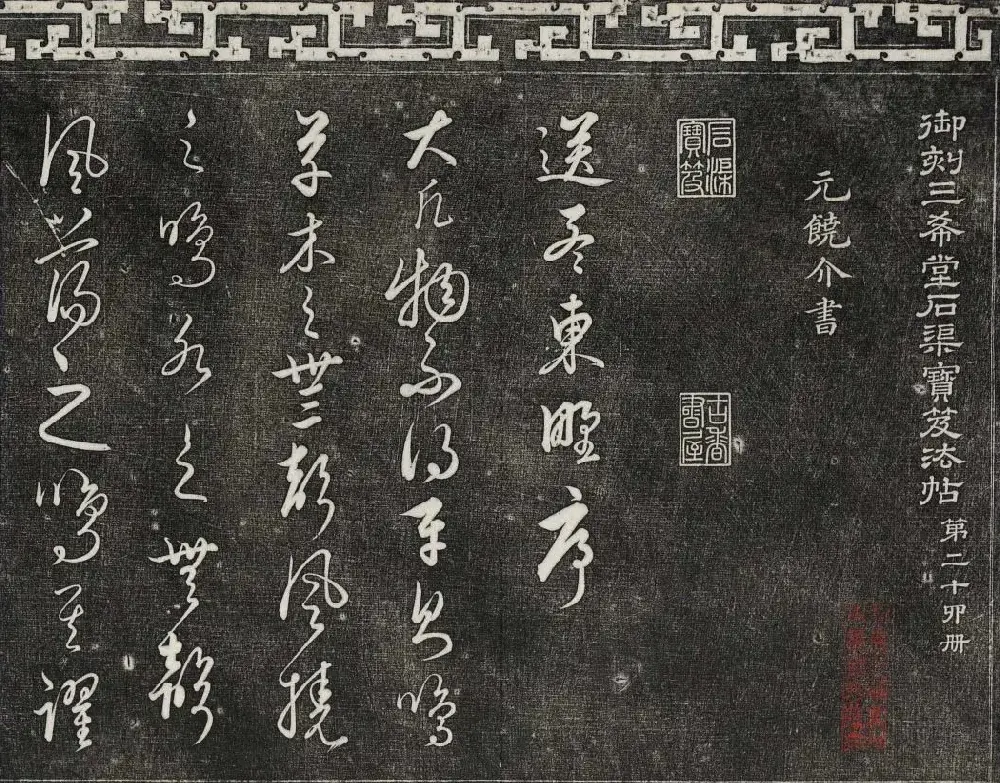 御刻三希堂石渠寶笈法帖 第二十四册
元饒介書
石渠寶笈
古香書屋
送孟東野序
大凡物不得平則鳴
草木之無聲風撓
之鳴水之無聲
風蕩之鳴其躍